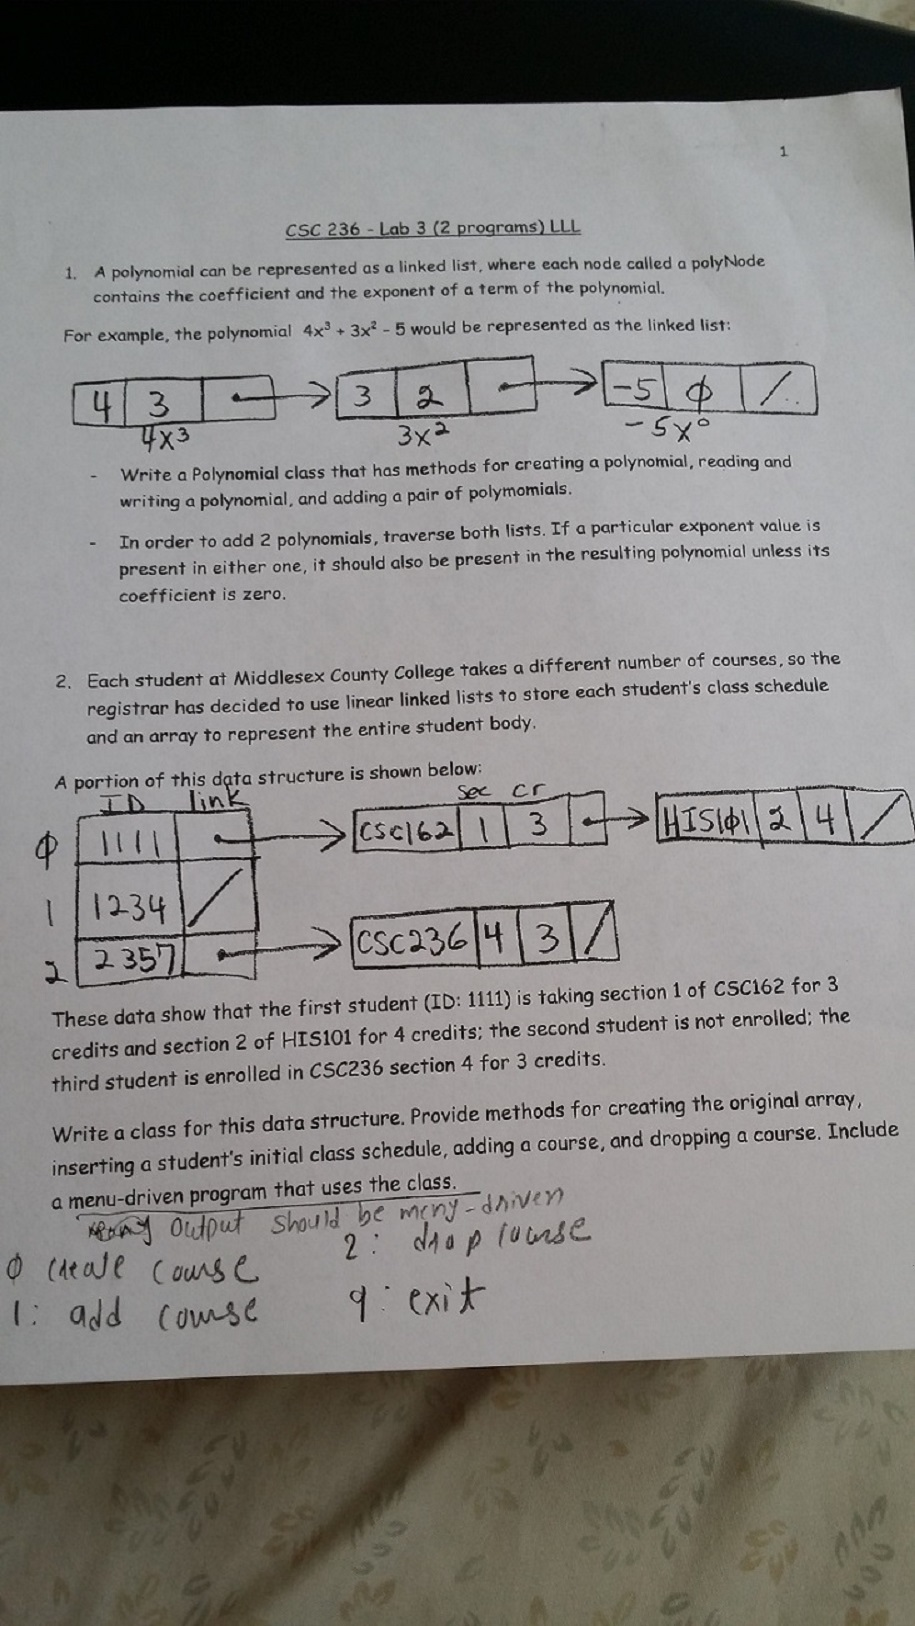 1
CSC 236 - Lab 3 (2 programs) LLL
1. A polynomial can be represented as a linked list, where each node called a polyNode
contains the coefficient and the exponent of a term of the polynomial.
For example, the polynomial 4x³ + 3x² - 5 would be represented as the linked list:
4 3 3 2 -5 φ /
4x³ 3x² -5x⁰
- Write a Polynomial class that has methods for creating a polynomial, reading and
writing a polynomial, and adding a pair of polymomials.
- In order to add 2 polynomials, traverse both lists. If a particular exponent value is
present in either one, it should also be present in the resulting polynomial unless its
coefficient is zero.
2. Each student at Middlesex County College takes a different number of courses, so the
registrar has decided to use linear linked lists to store each student's class schedule
and an array to represent the entire student body.
A portion of this data structure is shown below:
ID link sec cr
φ 1111 CSC162 1 3 HIS1φ1 2 4 /
1 1234 /
2 2357 CSC236 4 3 /
These data show that the first student (ID: 1111) is taking section 1 of CSC162 for 3
credits and section 2 of HIS101 for 4 credits; the second student is not enrolled; the
third student is enrolled in CSC236 section 4 for 3 credits.
Write a class for this data structure. Provide methods for creating the original array,
inserting a student's initial class schedule, adding a course, and dropping a course. Include
a menu-driven program that uses the class.
output should be meny-driven
φ create course 2: drop course
1: add course 9: exit